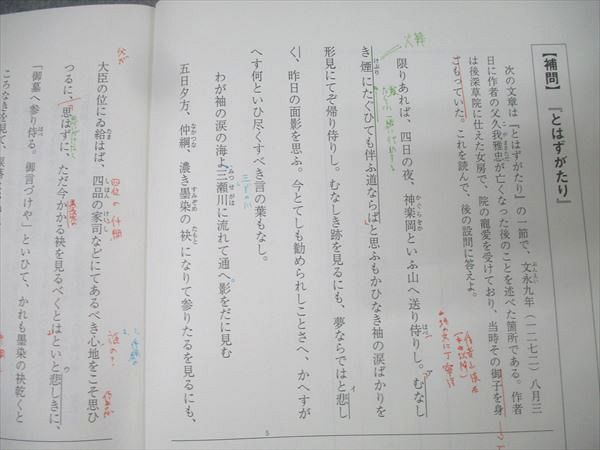 【補問】『とはずがたり』
次の文章は『とはずがたり』の一節で、文永九年（一二七二）八月三
日に作者の父久我雅忠が亡くなった後のことを述べた箇所である。作者
は後深草院に仕えた女房で、院の寵愛を受けており、当時その御子を身
ごもっていた。これを読んで、後の設問に答えよ。
限りあれば、四日の夜、神楽岡といふ山へ送り侍りし。むなし
き煙にたぐひても伴ふ道ならばと思ふもかひなき袖の涙ばかりを
形見にてぞ帰り侍りし。むなしき跡を見るにも、夢ならではと悲し
く、昨日の面影を思ふ。今とてしも勧められしことさへ、かへすが
へす何といひ尽くすべき言の葉もなし。
わが袖の涙の海よ三瀬川に流れて通へ影をだに見む
五日夕方、仲綱、濃き墨染の袂になりて参りたるを見るにも、
5
大臣の位にゐ給はば、四品の家司などにてあるべき心地をこそ思ひ
つるに、思はずに、ただ今かかる袂を見るべくとはといと悲しきに、
「御墓へ参り侍る。御言づけや」といひて、かれも墨染の袂乾くと
ころなきを見て、涙